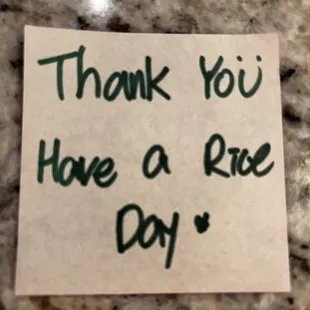 Thank You
Have a Rice
Day